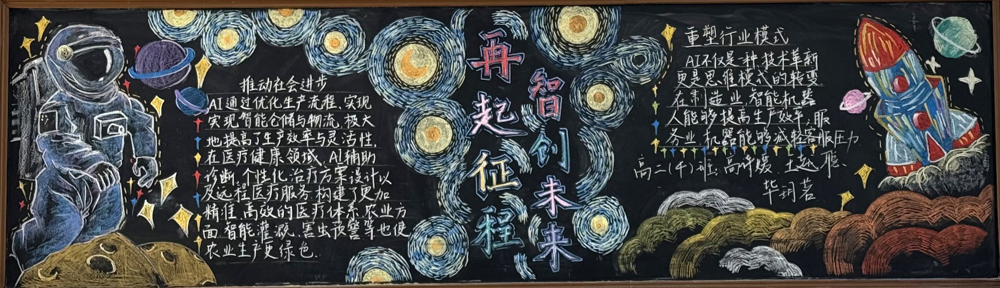 推动社会进步
AI通过优化生产流程、实现
实现智能仓储与物流,极大
地提高了生产效率与灵活性,
在医疗健康领域、AI辅助
诊断、个性化治疗方案设计以
及远程医疗服务构建了更加
精准、高效的医疗体系,农业方
面智能灌溉、害虫预警等也使
农业生产更绿色.
再起征程
智创未来
重塑行业模式
AI不仅是一种技术革新
更是思维模式的转变
在制造业,智能机器
人能够提高生产效率,服
务业,机器能够减轻客服压力
高二(4)班: